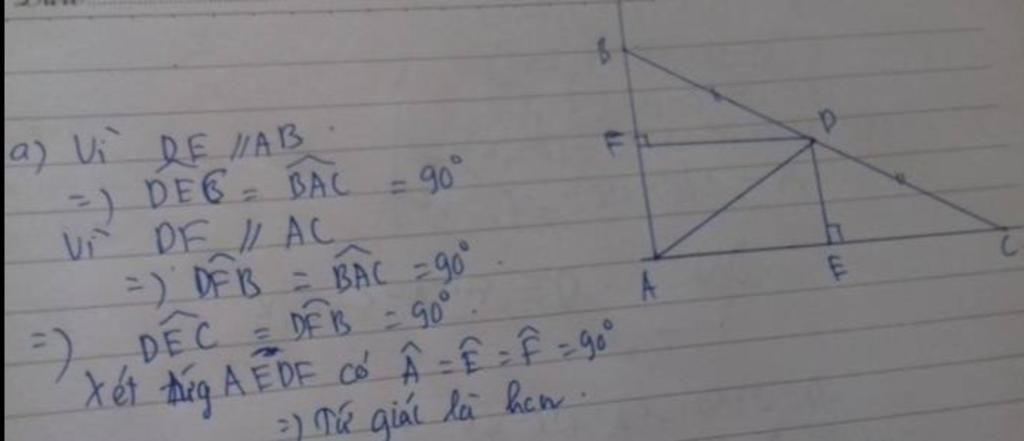 a) Vì DE // AB
=) DEC^ = BAC^ = 90°
Vì DF // AC
=) DFB^ = BAC^ = 90°.
=) DEC^ = DFB^ = 90°.
Xét tứg AEDF có Â = Ê = F^ = 90°
=) Tứ giác là hcn.
B
F
D
A
E
C